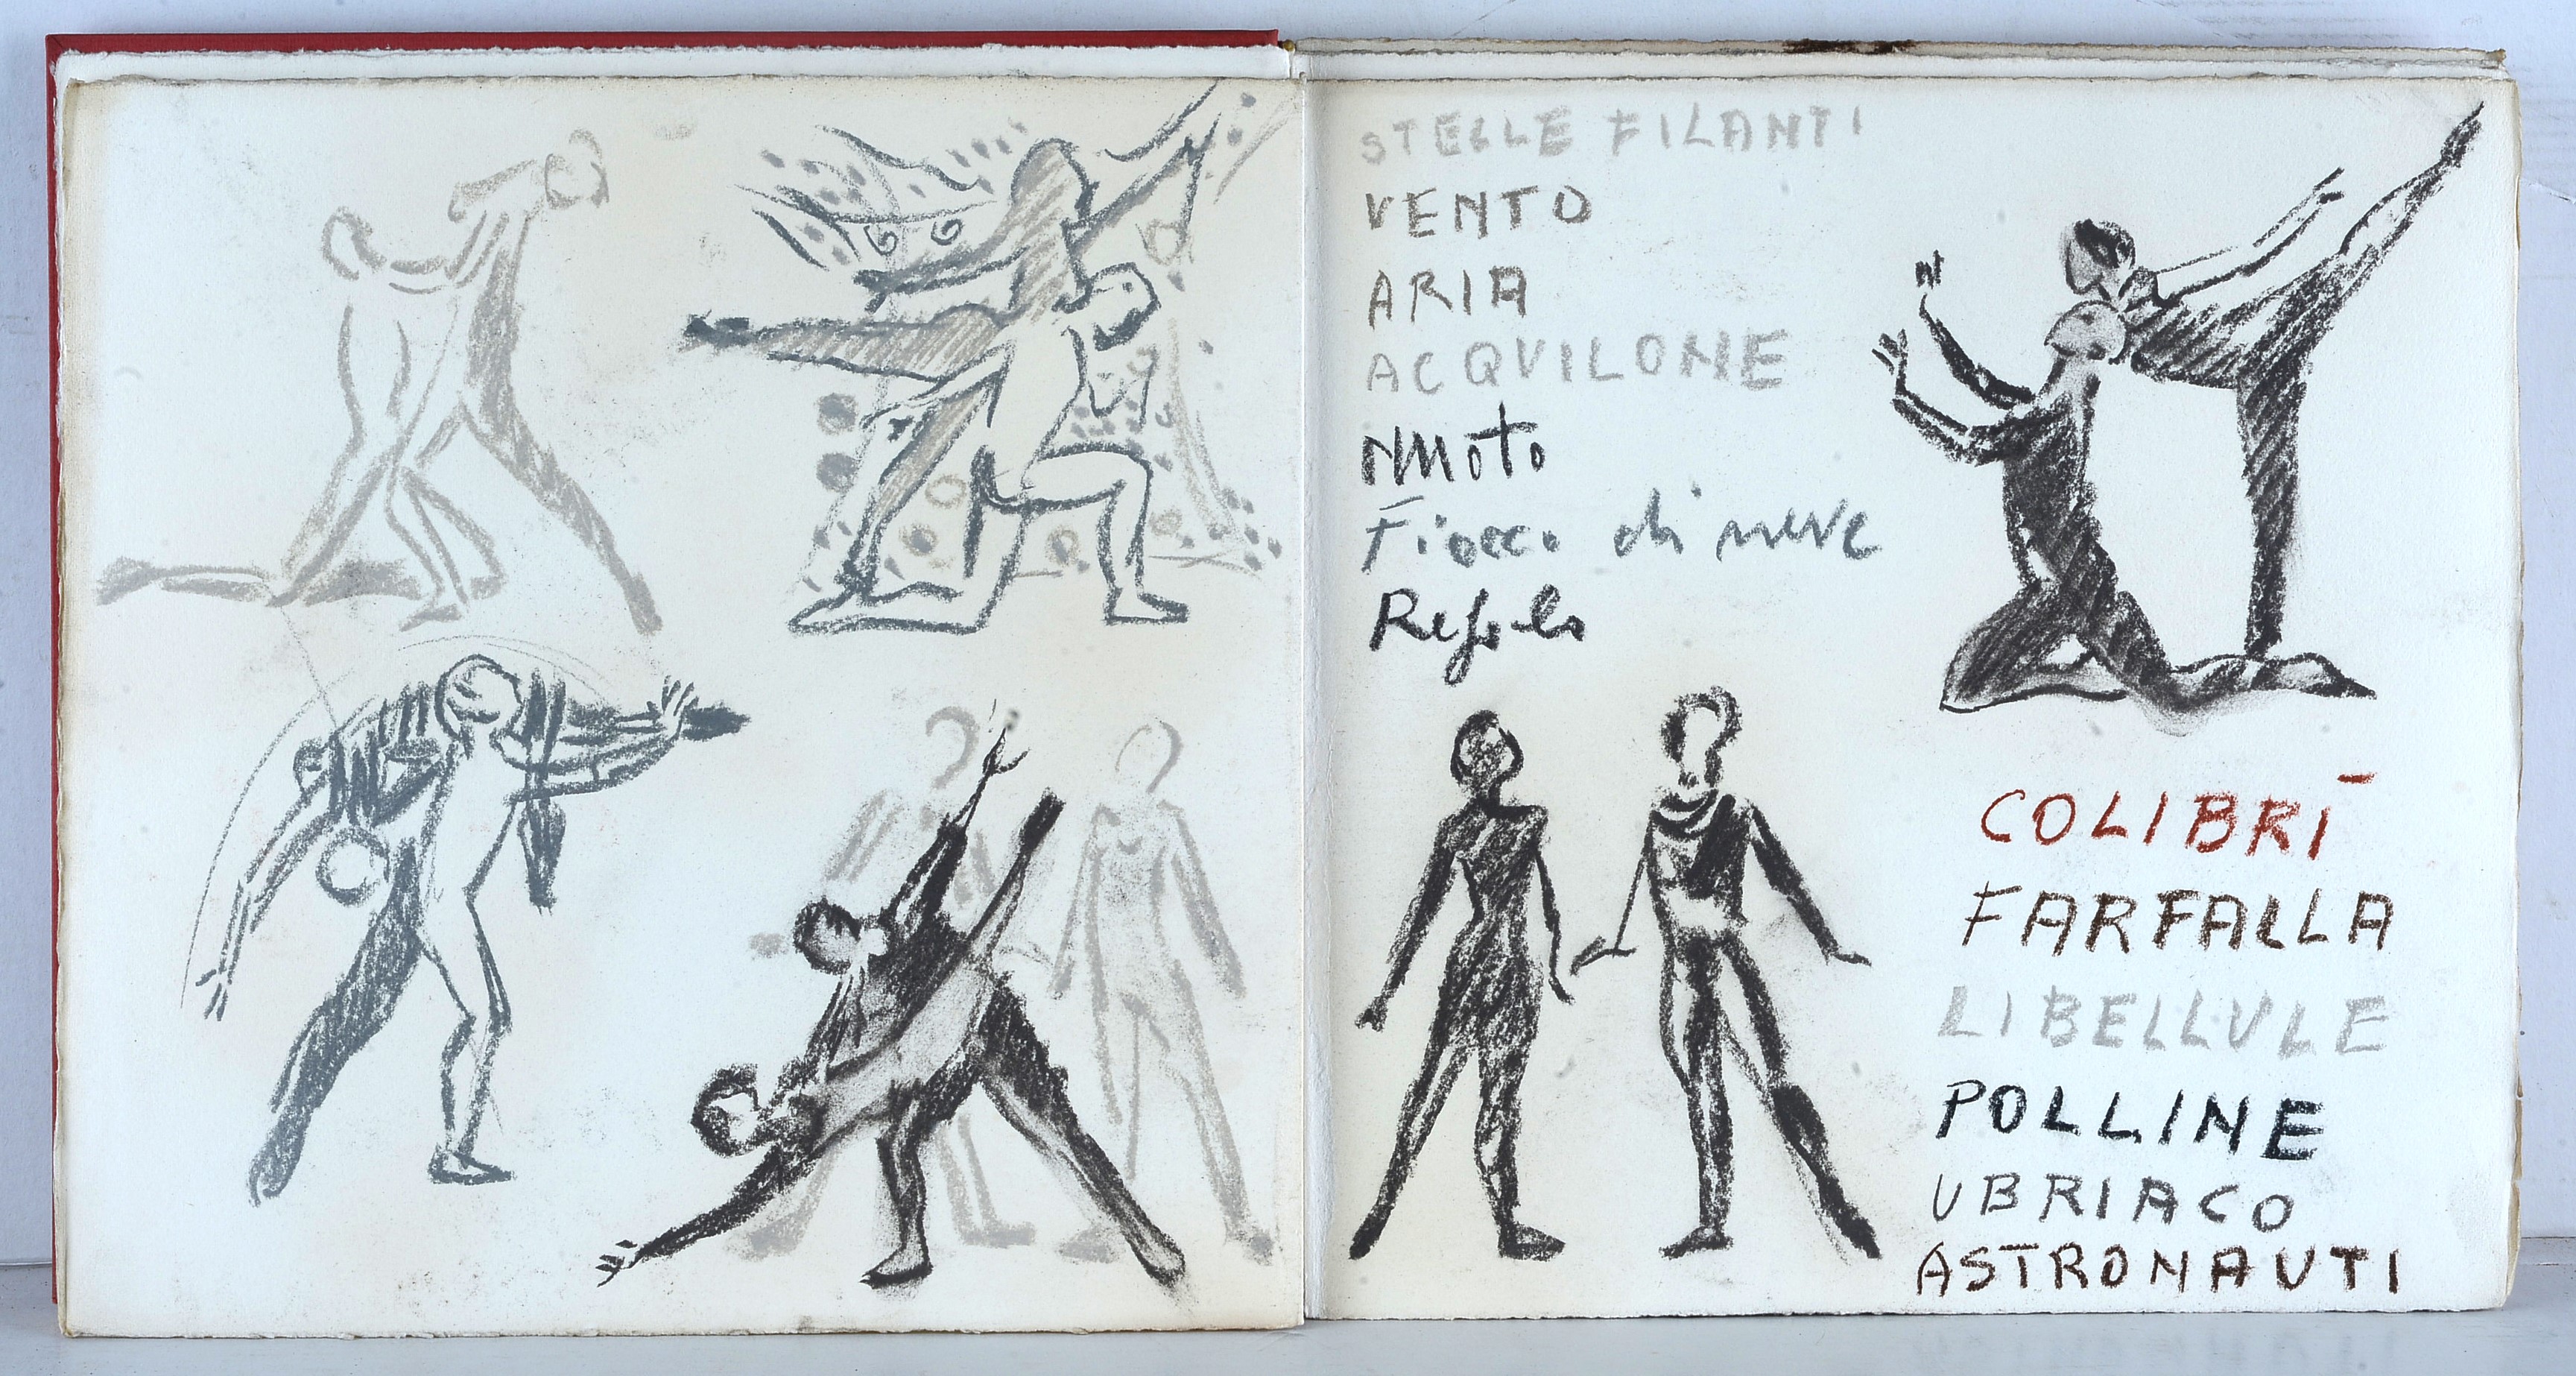 STELLE FILANTI
VENTO
ARIA
ACQUILONE
Nuoto
Fiocco di neve
Refolo
COLIBRÌ
FARFALLA
LIBELLULE
POLLINE
UBRIACO
ASTRONAUTI